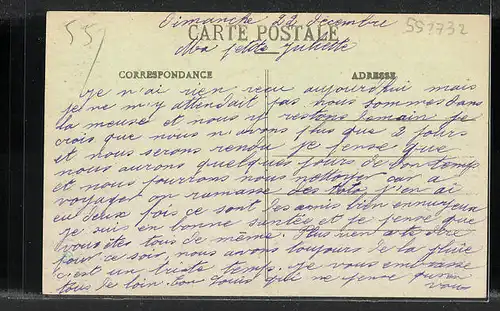 55
557732
Dimanche 22 Decembre
CARTE POSTALE
Ma petite Juliette
CORRESPONDANCE
ADRESSE
Je n'ai rien recu aujourd'hui mais
je ne m'y attendait pas nous sommes dans
la meuse et nous y restons demain je
crois que nous n'avons plus que 2 jours
et nous serons rendu je pense que
nous aurons quelques jours de bon temps
et nous pourrons nous nettoyer car a
voyager on ramasse des toto j'en ai
eu deux fois ce sont des amis bien ennuyeux
je suis en bonne santée et je pense que
vous êtes tous de même. Plus rien a te dire
pour ce soir, nous avons toujours de la pluie
c'est un triste temps. Je vous embrasse
tous de loin. Ton Louis qui ne pense
vous